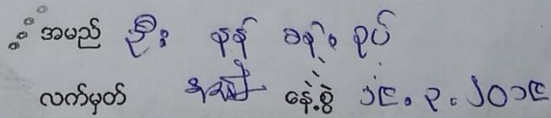 အမည် ဦး နန် ခန့် စုပ်
လက်မှတ် နေ့စွဲ ၁၉.၃.၂၀၁၉